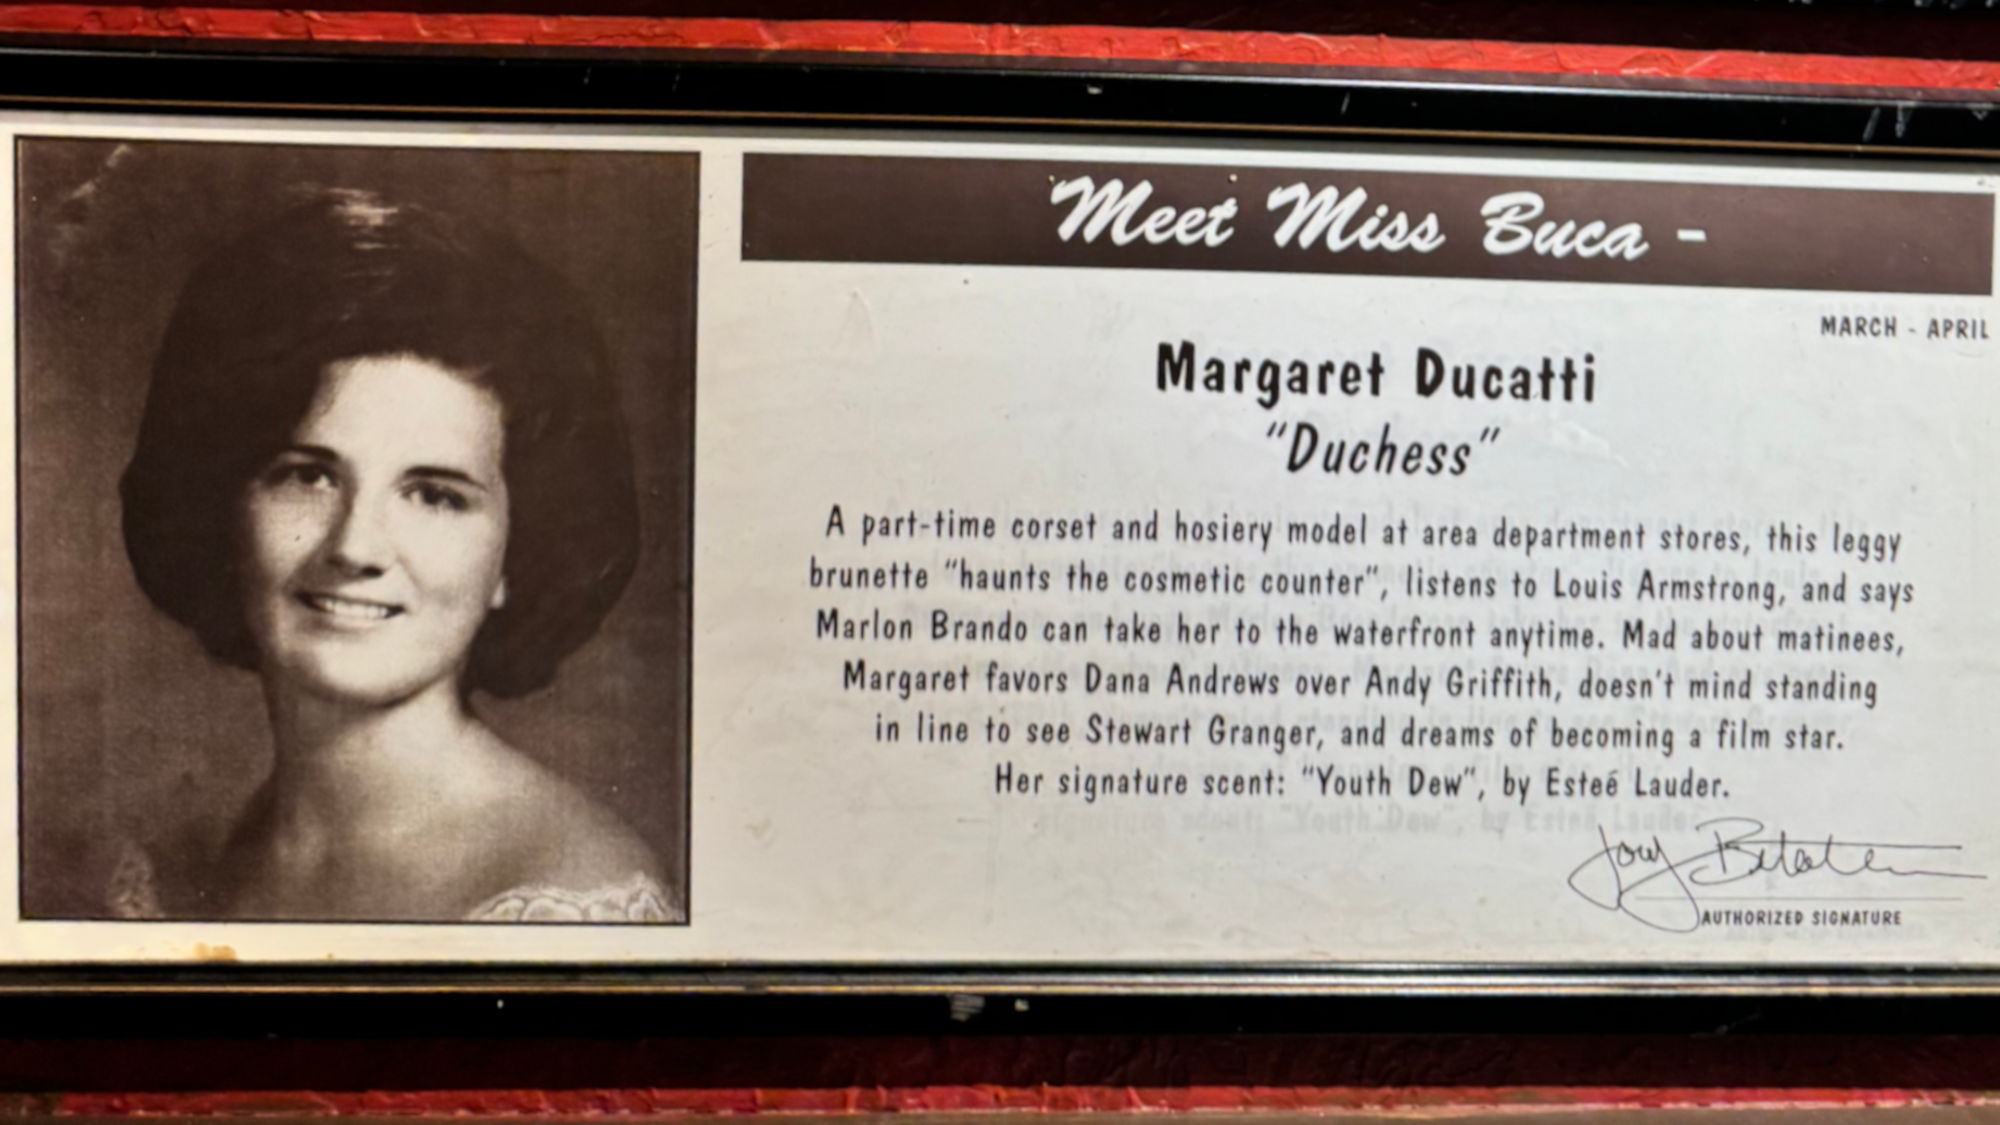 Meet Miss Buca -
MARCH - APRIL
Margaret Ducatti
"Duchess"
A part-time corset and hosiery model at area department stores, this leggy
brunette "haunts the cosmetic counter", listens to Louis Armstrong, and says
Marlon Brando can take her to the waterfront anytime. Mad about matinees,
Margaret favors Dana Andrews over Andy Griffith, doesn't mind standing
in line to see Stewart Granger, and dreams of becoming a film star.
Her signature scent: "Youth Dew", by Esteé Lauder.
AUTHORIZED SIGNATURE